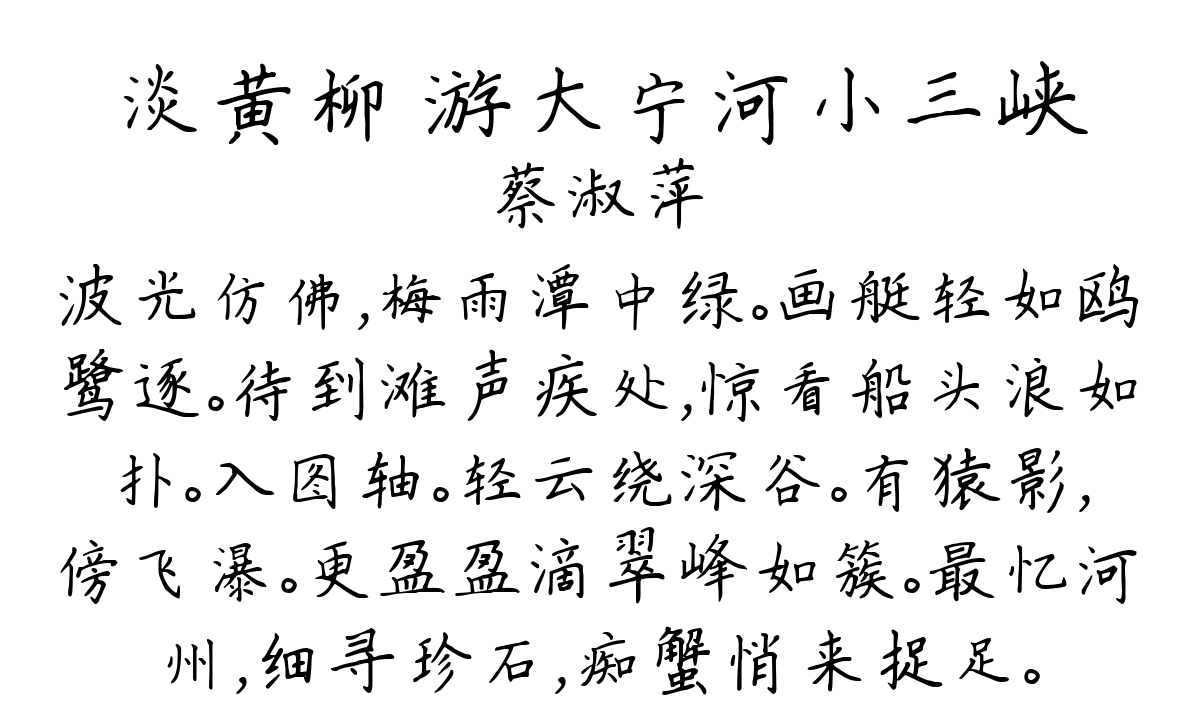 淡黄柳 游大宁河小三峡
蔡淑萍
波光仿佛,梅雨潭中绿。画艇轻如鸥
鹭逐。待到滩声疾处,惊看船头浪如
扑。入图轴。轻云绕深谷。有猿影,
傍飞瀑。更盈盈滴翠峰如簇。最忆河
州,细寻珍石,痴蟹悄来捉足。